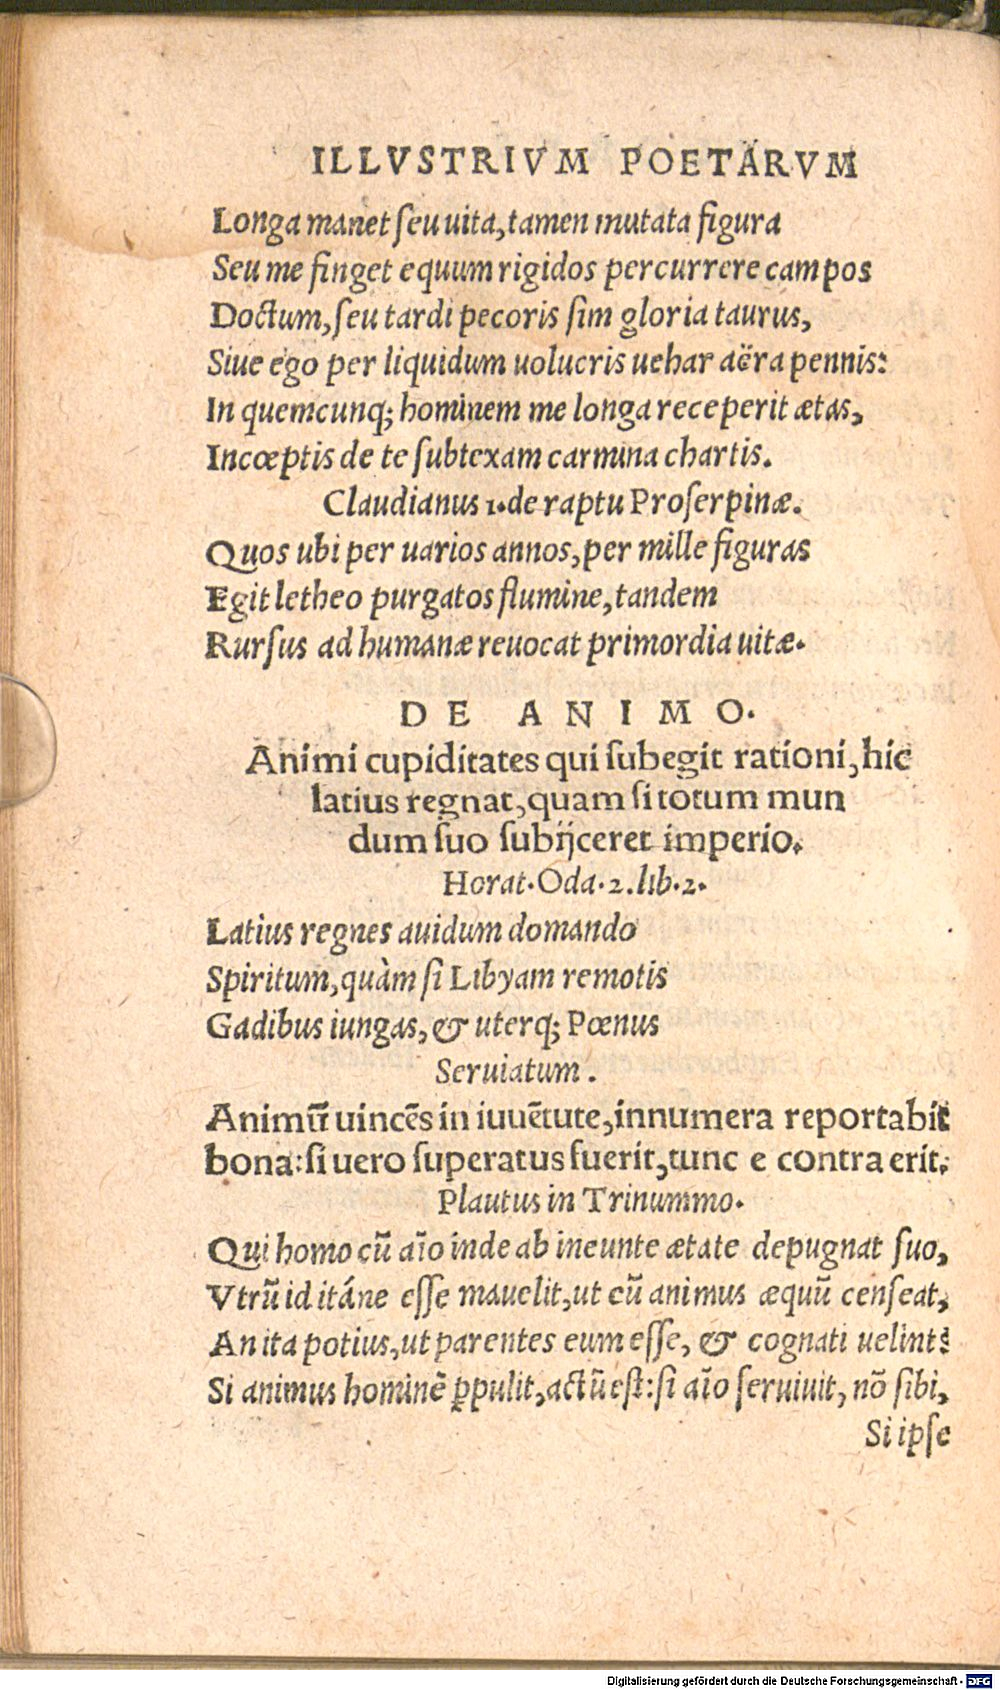 ILLVSTRIVM POETARVM
Longa manet ſeu uita, tamen mutata figura
Seu me finget equum rigidos percurrere campos
Doctum, ſeu tardi pecoris ſim gloria taurus,
Siue ego per liquidum uolucris uehar aëra pennis:
In quemcunq; hominem me longa receperit ætas,
Incœptis de te ſubtexam carmina chartis.
Claudianus 1. de raptu Proſerpinæ.
Quos ubi per uarios annos, per mille figuras
Egit letheo purgatos flumine, tandem
Rurſus ad humanæ reuocat primordia uitæ.
DE ANIMO.
Animi cupiditates qui ſubegit rationi, hic
latius regnat, quam ſi totum mun
dum ſuo ſubijceret imperio.
Horat. Oda. 2. lib. 2.
Latius regnes auidum domando
Spiritum, quàm ſi Libyam remotis
Gadibus iungas, & uterq; Pœnus
Seruiatum.
Animū uincēs in iuuētute, innumera reportabit
bona: ſi uero ſuperatus fuerit, tunc e contra erit.
Plautus in Trinummo.
Qui homo cū aīo inde ab ineunte ætate depugnat ſuo,
Vtrū id itáne eſſe mauelit, ut cū animus æquū cenſeat,
An ita potius, ut parentes eum eſſe, & cognati uelint?
Si animus hominē ꝑpulit, actū eſt: ſi aīo ſeruiuit, nō ſibi,
Si ipſe
Digitalisierung gefördert durch die Deutsche Forschungsgemeinschaft - DFG